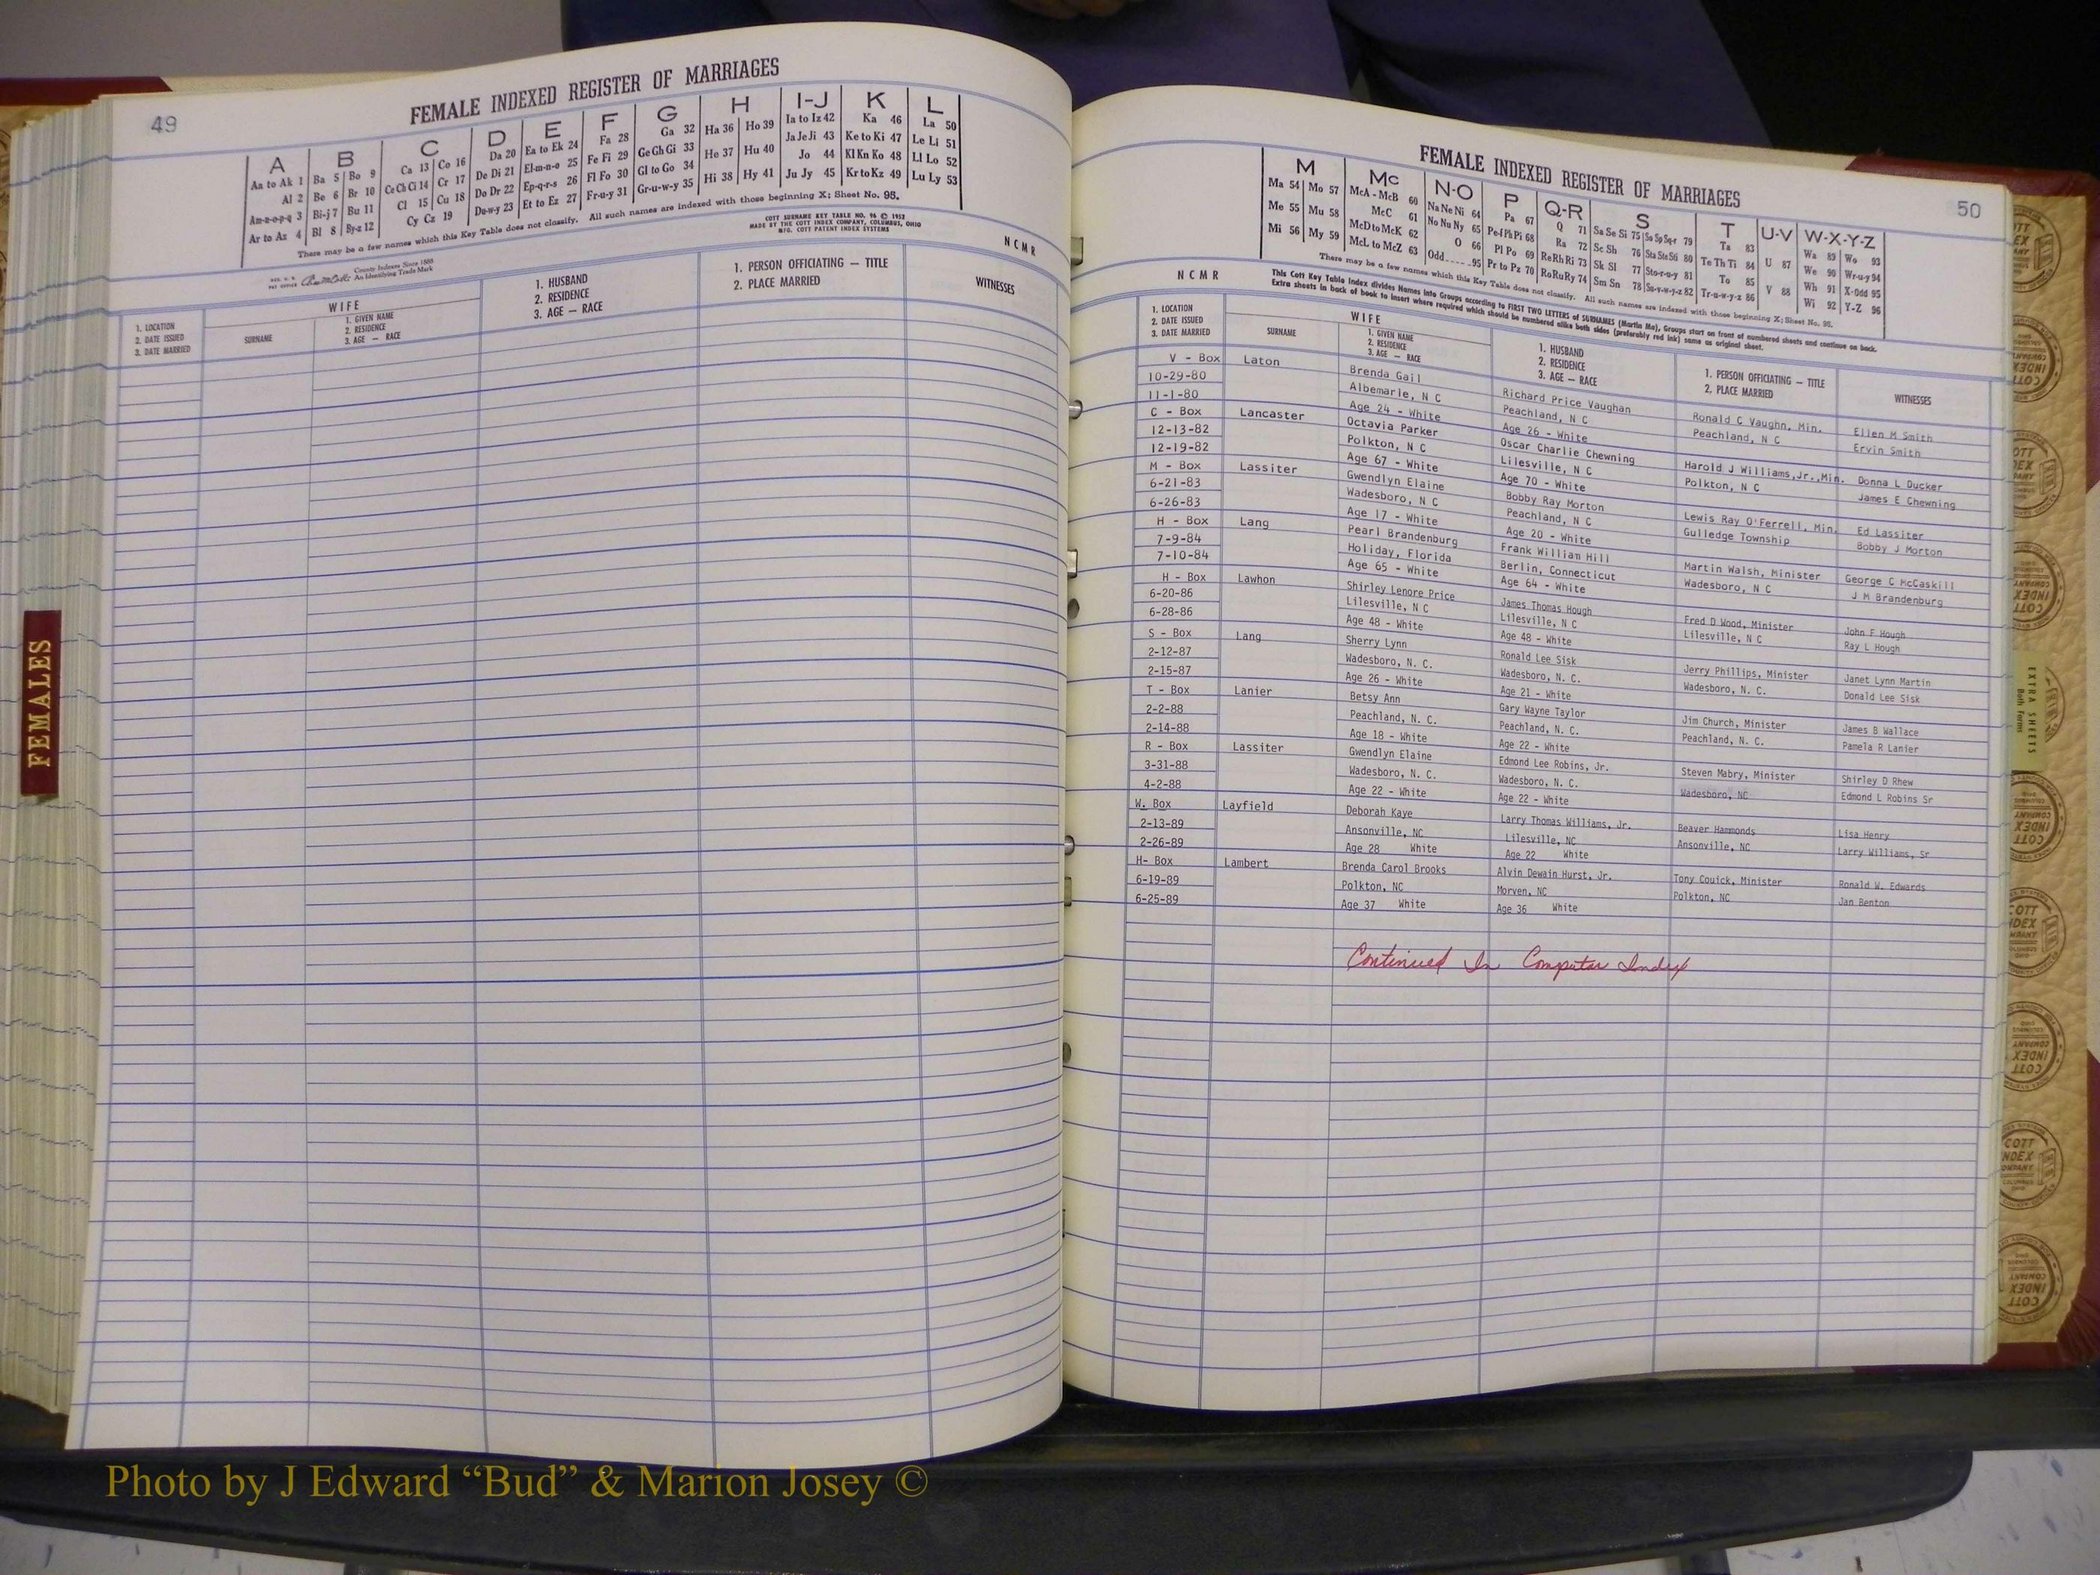 49
FEMALE INDEXED REGISTER OF MARRIAGES
A B C D E F G H I-J K L
Aa to Ak 1 Ba 5 Bo 9 Ca 13 Co 16 Da 20 Ea to Ek 24 Fa 28 Ga 32 Ha 36 Ho 39 Ia to Iz 42 Ka 46 La 50
Al 2 Be 6 Br 10 Ce Ch Ci 14 Cr 17 De Di 21 El-m-n-o 25 Fe Fi 29 Ge Gh Gi 33 He 37 Hu 40 Ja Je Ji 43 Ke to Ki 47 Le Li 51
Am-n-o-p-q 3 Bi-j 7 Bu 11 Cl 15 Cu 18 Do Dr 22 Ep-q-r-s 26 Fl Fo 30 Gl to Go 34 Hi 38 Hy 41 Jo 44 Kl Kn Ko 48 Ll Lo 52
Ar to Az 4 Bl 8 By-z 12 Cy Cz 19 Du-w-y 23 Et to Ez 27 Fr-u-y 31 Gr-u-w-y 35 Ju Jy 45 Kr to Kz 49 Lu Ly 53
There may be a few names which this Key Table does not classify. All such names are indexed with those beginning X; Sheet No. 95.
County Indexes Since 1888
An Identifying Trade Mark
COTT SURNAME KEY TABLE NO. 96 © 1952
MADE BY THE COTT INDEX COMPANY, COLUMBUS, OHIO
MFG. COTT PATENT INDEX SYSTEMS
N C M R
1. LOCATION
2. DATE ISSUED
3. DATE MARRIED
WIFE
SURNAME
1. GIVEN NAME
2. RESIDENCE
3. AGE — RACE
1. HUSBAND
2. RESIDENCE
3. AGE — RACE
1. PERSON OFFICIATING — TITLE
2. PLACE MARRIED
WITNESSES
FEMALES
FEMALE INDEXED REGISTER OF MARRIAGES
50
M Mc N-O P Q-R S T U-V W-X-Y-Z
Ma 54 Mo 57 McA - McB 60 Na Ne Ni 64 Pa 67 Q 71 Sa Se Si 75 So Sp Sq-r 79 Ta 83 U 87 Wa 89 Wo 93
Me 55 Mu 58 McC 61 No Nu Ny 65 Pe-f Ph Pi 68 Ra 72 Sc Sh 76 Sta Ste Sti 80 Te Th Ti 84 V 88 We 90 Wr-u-y 94
Mi 56 My 59 McD to McK 62 O 66 Pl Po 69 Re Rh Ri 73 Sk Sl 77 Sto-r-u-y 81 To 85 Wh 91 X-Odd 95
McL to McZ 63 Odd 95 Pr to Pz 70 Ro Ru Ry 74 Sm Sn 78 Su-v-w-y-z 82 Tr-u-w-y-z 86 Wi 92 Y-Z 96
There may be a few names which this Key Table does not classify. All such names are indexed with those beginning X; Sheet No. 95.
N C M R
This Cott Key Table Index divides Names into Groups according to FIRST TWO LETTERS of SURNAMES (Martin Ma), Groups start on front of numbered sheets and continue on back.
Extra sheets in back of book to insert where required which should be numbered alike both sides (preferably red ink) same as original sheet.
1. LOCATION
2. DATE ISSUED
3. DATE MARRIED
WIFE
SURNAME
1. GIVEN NAME
2. RESIDENCE
3. AGE — RACE
1. HUSBAND
2. RESIDENCE
3. AGE — RACE
1. PERSON OFFICIATING — TITLE
2. PLACE MARRIED
WITNESSES
V - Box Laton Brenda Gail Richard Price Vaughan Ronald C Vaughn, Min. Ellen M Smith
10-29-80 Albemarle, N C Peachland, N C Peachland, N C Ervin Smith
11-1-80 Age 24 - White Age 26 - White
C - Box Lancaster Octavia Parker Oscar Charlie Chewning Harold J Williams,Jr.,Min. Donna L Ducker
12-13-82 Polkton, N C Lilesville, N C Polkton, N C James E Chewning
12-19-82 Age 67 - White Age 70 - White
M - Box Lassiter Gwendlyn Elaine Bobby Ray Morton Lewis Ray O'Ferrell, Min. Ed Lassiter
6-21-83 Wadesboro, N C Peachland, N C Gulledge Township Bobby J Morton
6-26-83 Age 17 - White Age 20 - White
H - Box Lang Pearl Brandenburg Frank William Hill Martin Walsh, Minister George C McCaskill
7-9-84 Holiday, Florida Berlin, Connecticut Wadesboro, N C J M Brandenburg
7-10-84 Age 65 - White Age 64 - White
H - Box Lawhon Shirley Lenore Price James Thomas Hough Fred D Wood, Minister John F Hough
6-20-86 Lilesville, N C Lilesville, N C Lilesville, N C Ray L Hough
6-28-86 Age 48 - White Age 48 - White
S - Box Lang Sherry Lynn Ronald Lee Sisk Jerry Phillips, Minister Janet Lynn Martin
2-12-87 Wadesboro, N. C. Wadesboro, N. C. Wadesboro, N. C. Donald Lee Sisk
2-15-87 Age 26 - White Age 21 - White
T - Box Lanier Betsy Ann Gary Wayne Taylor Jim Church, Minister James B Wallace
2-2-88 Peachland, N. C. Peachland, N. C. Peachland, N. C. Pamela R Lanier
2-14-88 Age 18 - White Age 22 - White
R - Box Lassiter Gwendlyn Elaine Edmond Lee Robins, Jr. Steven Mabry, Minister Shirley D Rhew
3-31-88 Wadesboro, N. C. Wadesboro, N. C. Wadesboro, NC Edmond L Robins Sr
4-2-88 Age 22 - White Age 22 - White
W. Box Layfield Deborah Kaye Larry Thomas Williams, Jr. Beaver Hammonds Lisa Henry
2-13-89 Ansonville, NC Lilesville, NC Ansonville, NC Larry Williams, Sr
2-26-89 Age 28 White Age 22 White
H- Box Lambert Brenda Carol Brooks Alvin Dewain Hurst, Jr. Tony Couick, Minister Ronald W. Edwards
6-19-89 Polkton, NC Morven, NC Polkton, NC Jan Benton
6-25-89 Age 37 White Age 36 White
Continued In Computer Index
EXTRA SHEETS
Both Forms
COTT INDEX COMPANY COLUMBUS OHIO
Photo by J Edward “Bud” & Marion Josey ©